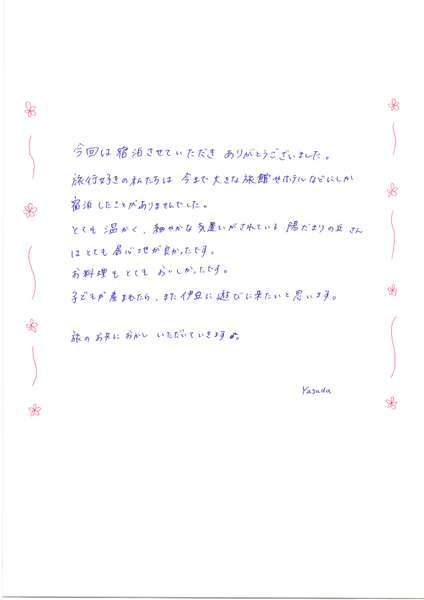 今回は宿泊させていただき ありがとうございました。
旅行好きの私たちは 今まで大きな旅館やホテルなどにしか
宿泊したことがありませんでした。
とても 温かく、細やかな気遣いがされている 陽だまりの丘 さん
はとても居心地が良かったです。
お料理も とても おいしかったです。
子どもが産まれたら、また伊豆に遊びに来たいと思います。
旅のお共に おかし いただいていきます♪。
Yasuda